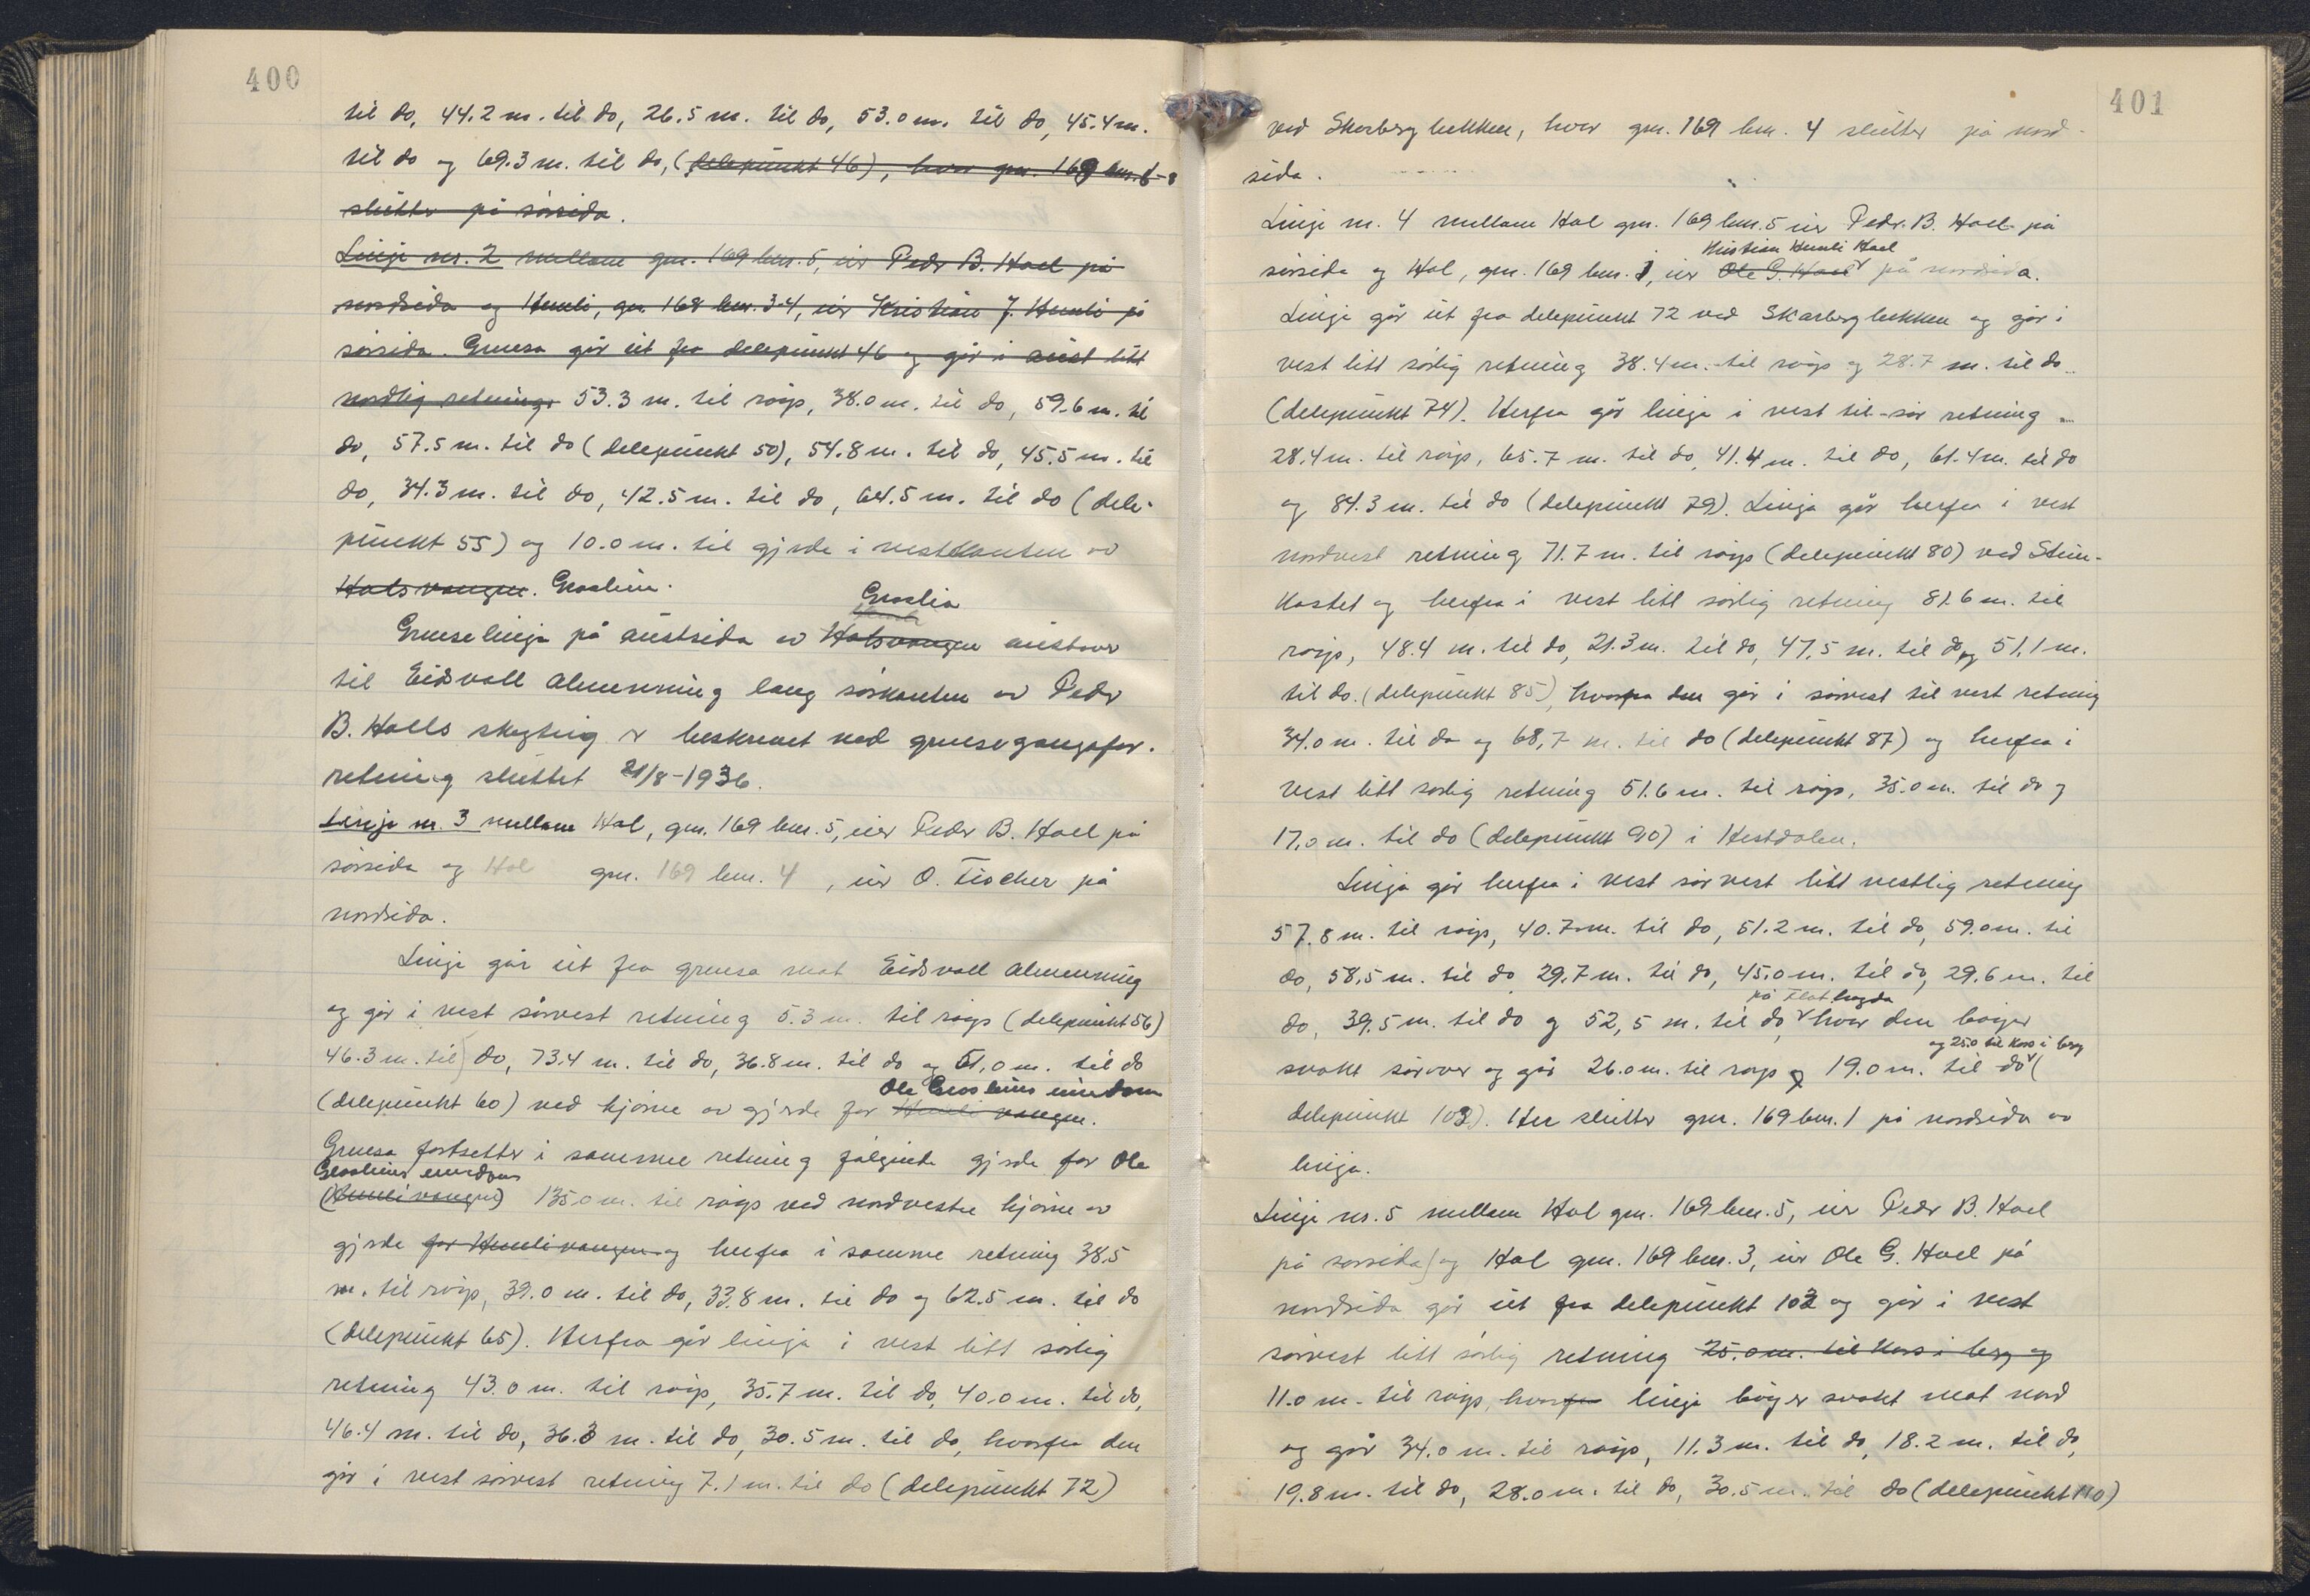 400
til do, 44.2 m. til do, 26.5 m. til do, 53.0 m. til do, 45.4 m.
til do og 69.3 m. til do, (delepunkt 46), hvor gnr. 169 bnr. 6-8
slutter på sørsida.
Linje nr. 2 mellom gnr. 169 bnr. 5, eier Peder B. Hoel på
nordsida og Humli, gnr. 168 bnr. 3-4, eier Kristian J. Humli på
sørsida. Grensa går ut fra delepunkt 46 og går i aust litt
nordlig retning 53.3 m. til røys, 38.0 m. til do, 59.6 m. til
do, 57.5 m. til do (delepunkt 50), 54.8 m. til do, 45.5 m. til
do, 34.3 m. til do, 42.5 m. til do, 64.5 m. til do (dele-
punkt 55) og 10.0 m. til gjerde i vestkanten av
Holsvangen. Graslien.
Graslia
Grenselinja på austsida av Holsvangen austover
til Eidsvoll almenning lang sørkanten av Peder
B. Hoels skogteig er beskrevet ved grensegangsfor-
retning sluttet 21/8-1936.
Linje nr. 3 mellom Hol, gnr. 169 bnr. 5, eier Peder B. Hoel på
sørsida og Hol gnr. 169 bnr. 4, eier O. Fischer på
nordsida.
Linja går ut fra grensa mot Eidsvoll almenning
og går i vest sørvest retning 5.3 m. til røys (delepunkt 56)
46.3 m. til do, 73.4 m. til do, 36.8 m. til do og 51,0 m. til do
Ole Grasliens eiendom
(delepunkt 60) ved hjørne av gjerde for Humlivangen.
Grensa fortsetter i samme retning følgende gjerde for Ole
Grasliens eiendom
(Humlivangen) 135.0 m. til røys ved nordvestre hjørne av
gjerde for Humlivangen og herfra i samme retning 38.5
m. til røys, 39.0 m. til do, 33.8 m. til do og 62.5 m. til do
(delepunkt 65). Herfra går linja i vest litt sørlig
retning 43.0 m. til røys, 35.7 m. til do, 40.0 m. til do,
46.4 m. til do, 36.3 m. til do, 30.5 m. til do, hvorfra den
går i vest sørvest retning 7.1 m. til do (delepunkt 72)
401
ved Skarbergbekken, hvor gnr. 169 bnr. 4 slutter på nord-
sida.
Linje nr. 4 mellom Hol gnr. 169 bnr. 5 eier Peder B. Hoel på
Kristian Humli Hoel
sørsida og Hol, gnr. 169 bnr. 1, eier Ole G. Hoel på nordsida.
Linja går ut fra delepunkt 72 ved Skarbergbekken og går i
vest litt sørlig retning 38.4 m. til røys og 28.7 m. til do
(delepunkt 74). Herfra går linja i vest til sør retning
28.4 m. til røys, 65.7 m. til do, 41.4 m. til do, 61.4 m. til do
og 84.3 m. til do (delepunkt 79). Linja går herfra i vest
nordvest retning 71.7 m. til røys (delepunkt 80) ved Stein-
kastet og herfra i vest litt sørlig retning 81.6 m. til
røys, 48.4 m. til do, 21.3 m. til do, 47.5 m. til do og 51,1 m.
til do. (delepunkt 85), hvorfra den går i sørvest til vest retning
34.0 m. til do og 68,7 m. til do (delepunkt 87) og herfra i
vest litt sørlig retning 51.6 m. til røys, 35.0 m. til do og
17,0 m. til do (delepunkt 90) i Hestdalen.
Linja går herfra i vest sørvest litt vestlig retning
57.8 m. til røys, 40.7 m. til do, 51.2 m. til do, 59.0 m. til
do, 58,5 m. til do, 29.7 m. til do, 45,0 m. til do, 29,6 m. til
på Flathøgda
do, 39.5 m. til do og 52,5 m. til do, hvor den bøyer
og 25.0 til kors i berg
svakt sørover og går 26.0 m. til røys og 19.0 m. til do (
delepunkt 103). Her slutter gnr. 169 bnr. 1 på nordsida av
linja.
Linje nr. 5 mellom Hol gnr. 169 bnr. 5, eier Peder B. Hoel
på sørsida og Hol gnr. 169 bnr. 3, eier Ole G. Hoel på
nordsida går ut fra delepunkt 103 og går i vest
sørvest litt sørlig retning 25.0 m. til kors i berg og
11.0 m. til røys, hvorfra linja bøyer svakt mot nord
og går 34.0 m. til røys, 11.3 m. til do, 18.2 m. til do,
19.8 m. til do, 28.0 m. til do, 30.5 m. til do (delepunkt 110)